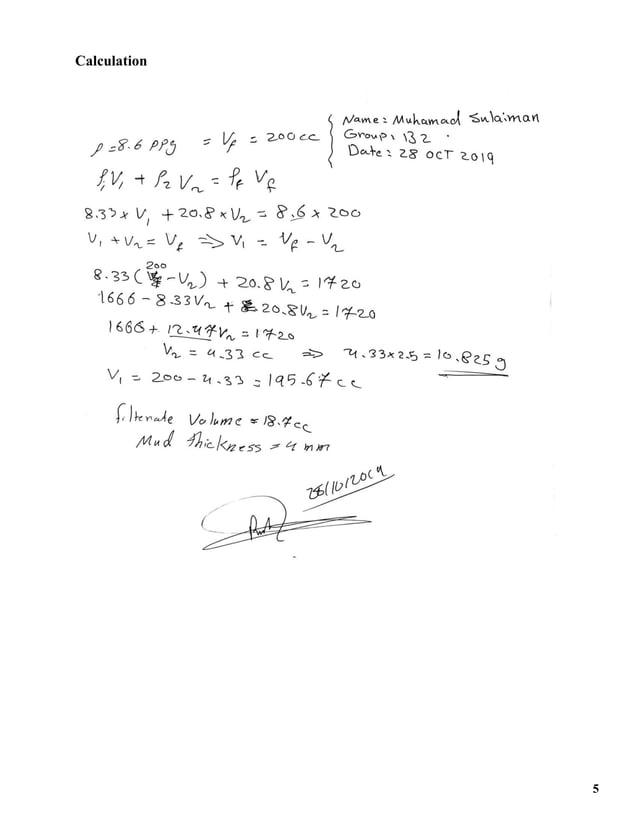 Calculation
ρ=8.6 ppg = Vf = 200cc
Name: Muhamad Sulaiman
Group: B2
Date: 28 OCT 2019
ρ₁V₁ + ρ₂V₂ = ρf Vf
8.33 x V₁ + 20.8 x V₂ = 8.6 x 200
V₁ + V₂ = Vf ⇒ V₁ = Vf - V₂
8.33(200 - V₂) + 20.8V₂ = 1720
1666 - 8.33V₂ + 20.8V₂ = 1720
1666 + 12.47V₂ = 1720
V₂ = 4.33 cc ⇒ 4.33x2.5 = 10.825 g
V₁ = 200 - 4.33 = 195.67 cc
filterate Volume = 18.7cc
Mud thickness = 4 mm
28/10/2019
5